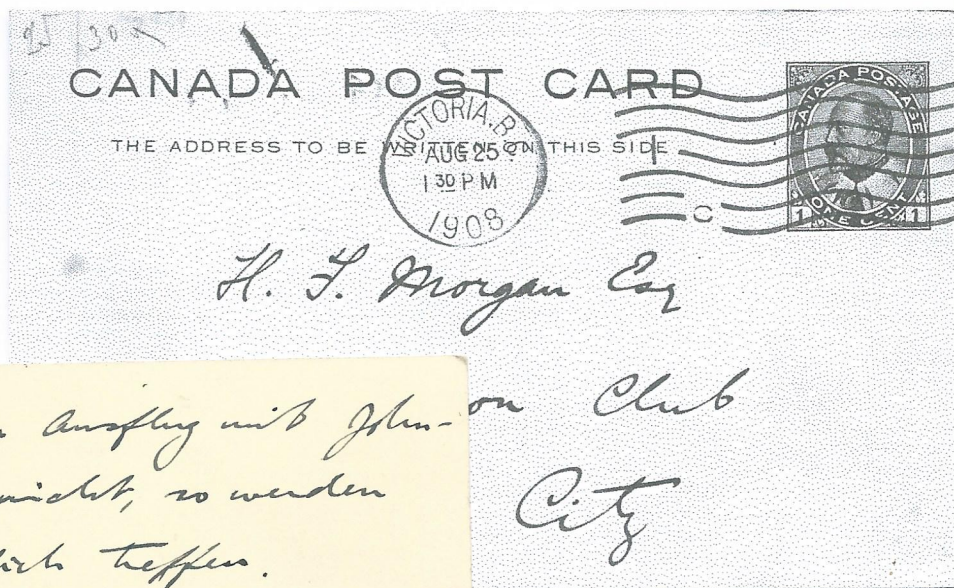 25/30
CANADA POST CARD
THE ADDRESS TO BE WRITTEN ON THIS SIDE
VICTORIA. B.
AUG 25
1 30 PM
1908
CANADA POSTAGE
1 ONE CENT 1
H. F. Morgan Esq
on Club
City
Ausflug mit John-
nicht, so werden
treffen.